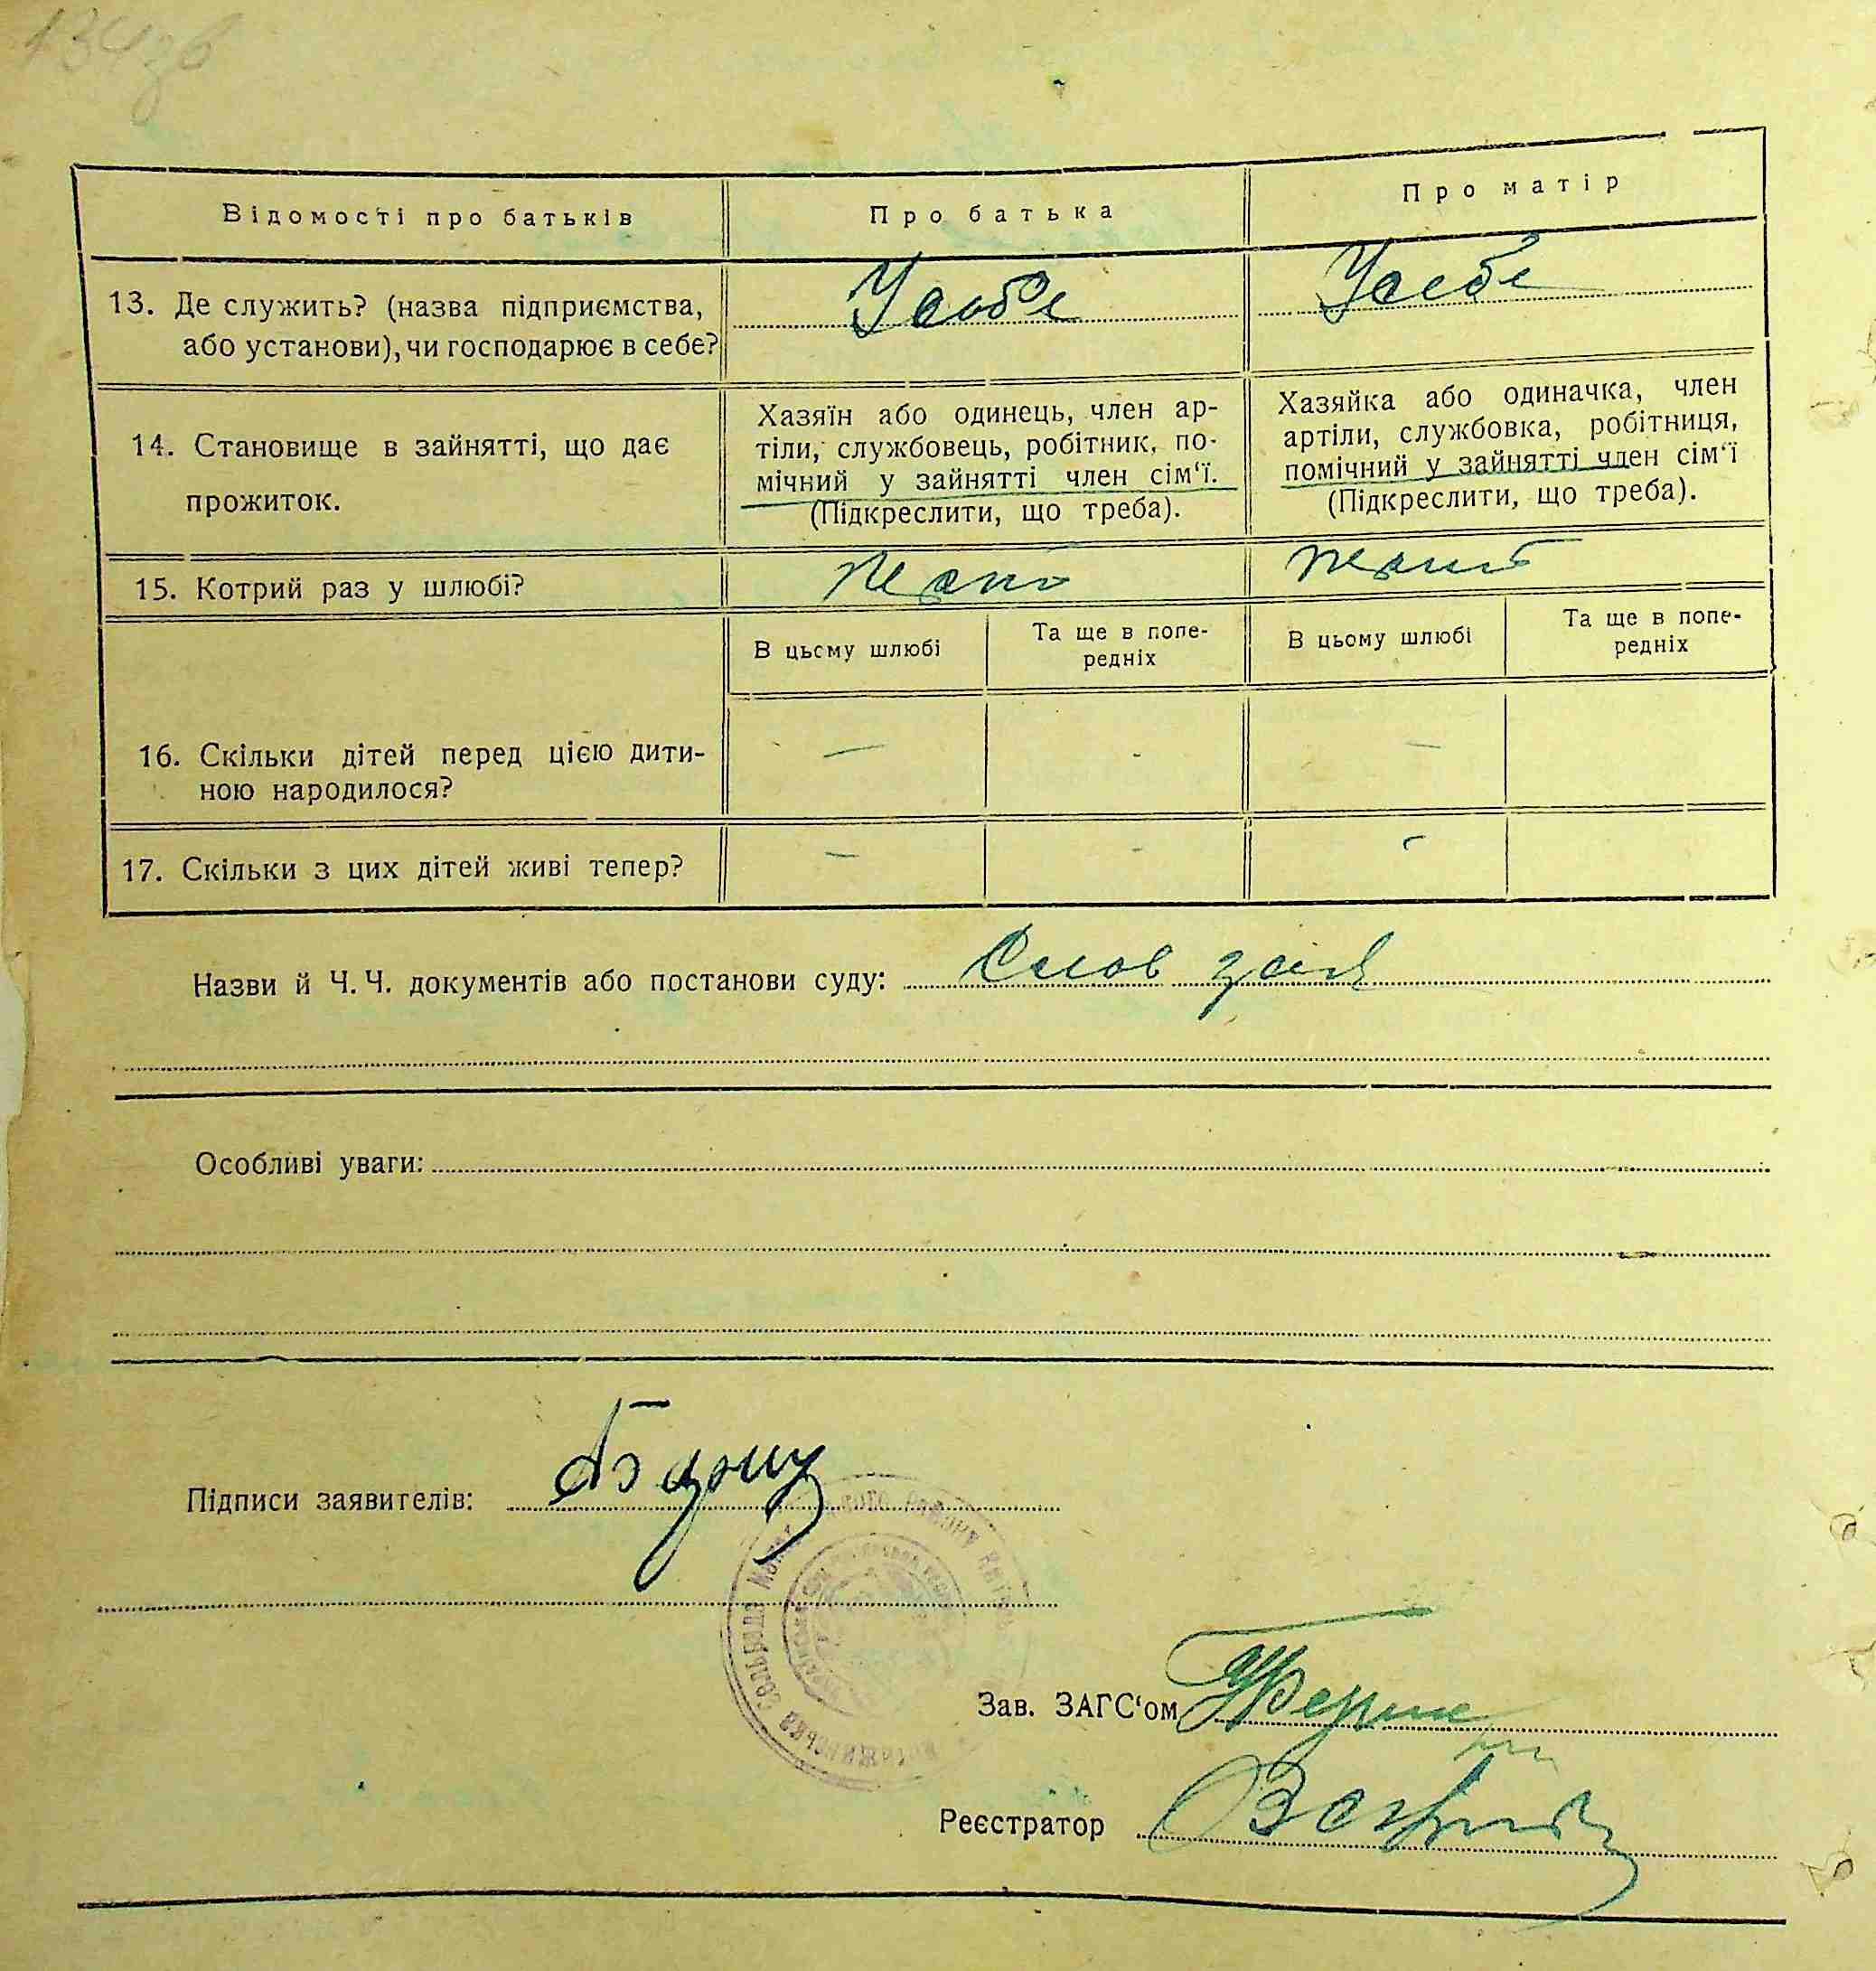 134зв
Відомості про батьків
Про батька
Про матір
13. Де служить? (назва підприємства,
або установи), чи господарює в себе?
Усебе
Усебе
14. Становище в зайнятті, що дає
прожиток.
Хазяїн або одинець, член ар-
тіли, службовець, робітник, по-
мічний у зайнятті член сім‘ї.
(Підкреслити, що треба).
Хазяйка або одиначка, член
артіли, службовка, робітниця,
помічний у зайнятті член сім‘ї
(Підкреслити, що треба).
15. Котрий раз у шлюбі?
В цьому шлюбі
Та ще в попе-
редніх
В цьому шлюбі
Та ще в попе-
редніх
16. Скільки дітей перед цією дити-
ною народилося?
— - —
17. Скільки з цих дітей живі тепер?
— - -
Назви й Ч. Ч. документів або постанови суду:
Особливі уваги:
Підписи заявителів:
Зав. ЗАГС‘ом
Реєстратор